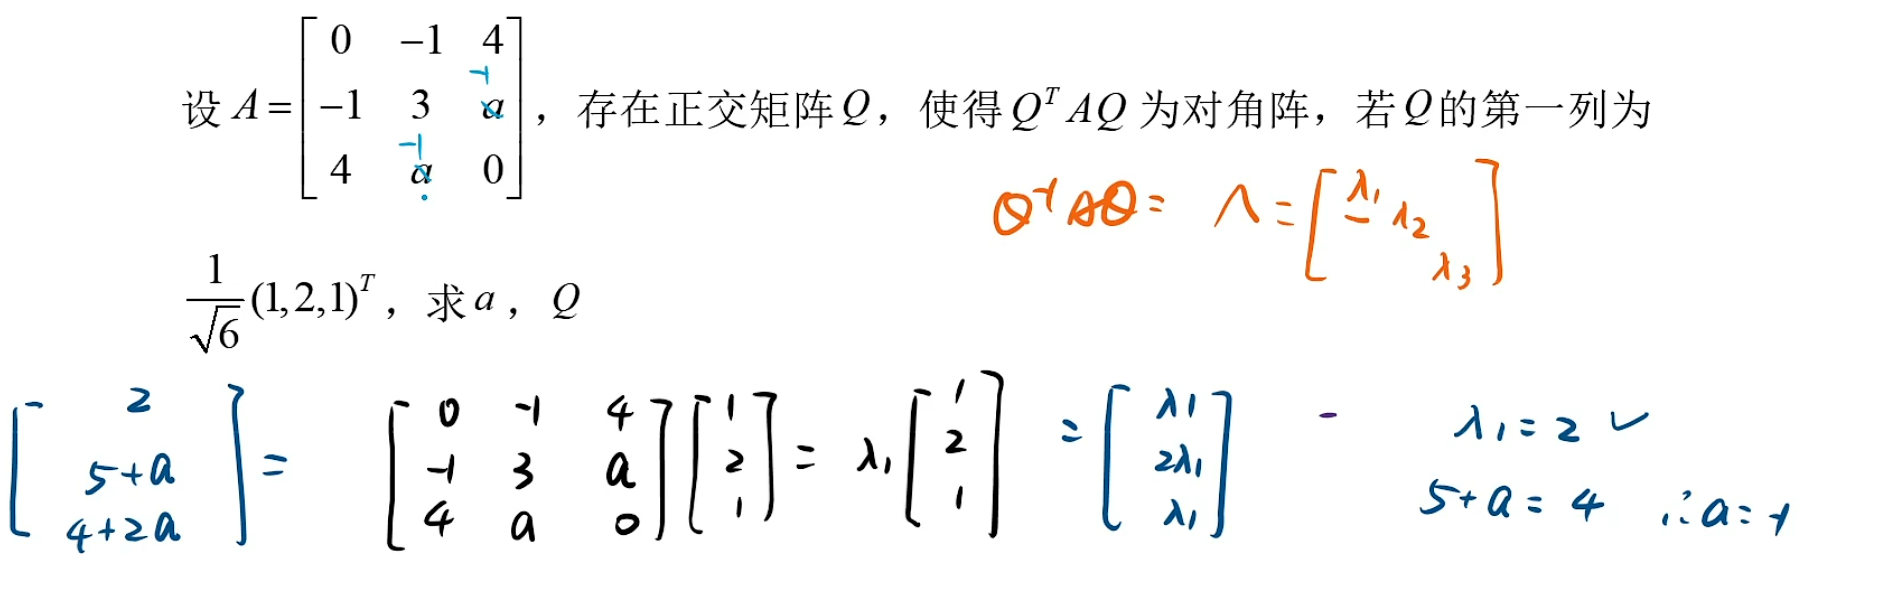 设 A = [ 0 -1 4 ; -1 3 a ; 4 a 0 ]，存在正交矩阵 Q，使得 Q^T AQ 为对角阵，若 Q 的第一列为
-1
-1
Q^-1 AQ = Λ = [ λ1 λ2 λ3 ]
1/√6 (1,2,1)^T，求 a，Q
[ 2 ; 5+a ; 4+2a ] = [ 0 -1 4 ; -1 3 a ; 4 a 0 ] [ 1 ; 2 ; 1 ] = λ1 [ 1 ; 2 ; 1 ] = [ λ1 ; 2λ1 ; λ1 ]
λ1 = 2 ✓
5+a = 4 ∴ a = -1